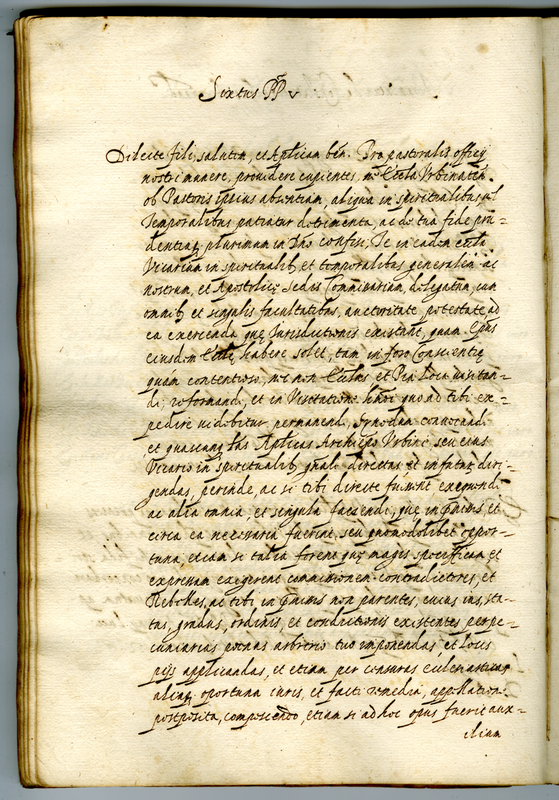 Sixtus PP V
Dilecte fili, salutem, et Aplicam ben. Pro pastoralis officij
nostri munere, providere cupientes, ne Ecclã Urbinaten.
ob Pastoris ipsius absentiam, aliqua in spiritualibus, vel
Temporalibus patiatur detrimenta, ac de tua fide pru=
dentiaq; plurimum in Dño confisi, Te in eadem eccla
Vicarium in spiritualib, et temporalibus generalem ac
nostrum, et Apostolicę Sedis Commissarium, delegatum, cum
omnib et singulis facultatibus, auctoritate, potestate, ad
ea exercenda quę Jurisdictionis existant, quam Epus
eiusdem Ecclę habere solet, tam in foro Conscientię
quám contentioso, nec non Ecclias et Pia Loca visitan=
di, reformandi, et in Visitatione huiõi quoad tibi ex=
pedire videbitur permanendi, Synodum convocandi
et quascunq; lras Aplicas Archiepo Urbinẽ seu eius
Vicario in spiritualib, gnali directas et in futur diri=
gendas, perinde, ac si tibi directe fuissent exequendi
ac alia omnia, et singula faciendi, quę in pmissis, et
circa ea necessaria fuerint, seu quomodolibet oppor=
tuna, etiam si talia forent quę magis specificam et
expressam exigerent commissionem contradictores, et
Rebelles, ac tibi in pmissis non parentes, cuius uis, sta=
tus, gradus, ordinis, et conditionis existentes per pe=
cuniarias poenas arbitrio tuo imponendas, et locis
pijs applicandas, et etiam per censuras ecclesiasticas
aliaq; oportuna iuris, et facti remedia, appellatione
postposita, compescendo, etiam si ad hoc opus fuerit aux=
ilium